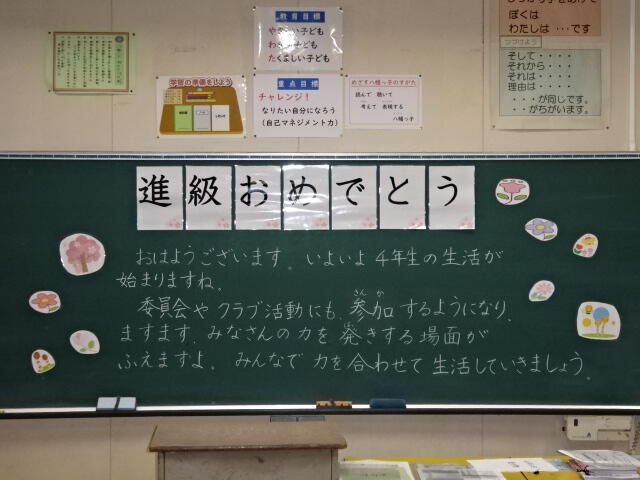 教育目標
やさしい子ども
わかる子ども
たくましい子ども
重点目標
チャレンジ！
なりたい自分になろう
（自己マネジメント力）
学習の準備をしよう
めざす八幡っ子のすがた
読んで 聴いて
考えて 表現する
八幡っ子
ぼくは
わたしは …です
つづけよう
そして・・・・
それから・・・・
それは・・・・・
理由は・・・・
・・・が同じです。
・・がちがいます。
進級おめでとう
おはようございます。いよいよ4年生の生活が
始まりますね。
委員会やクラブ活動にも、参加するようになり、
さん か
ますます、みなさんの力を発きする場面が
はっ
ふえますよ。みんなで力を合わせて生活していきましょう。